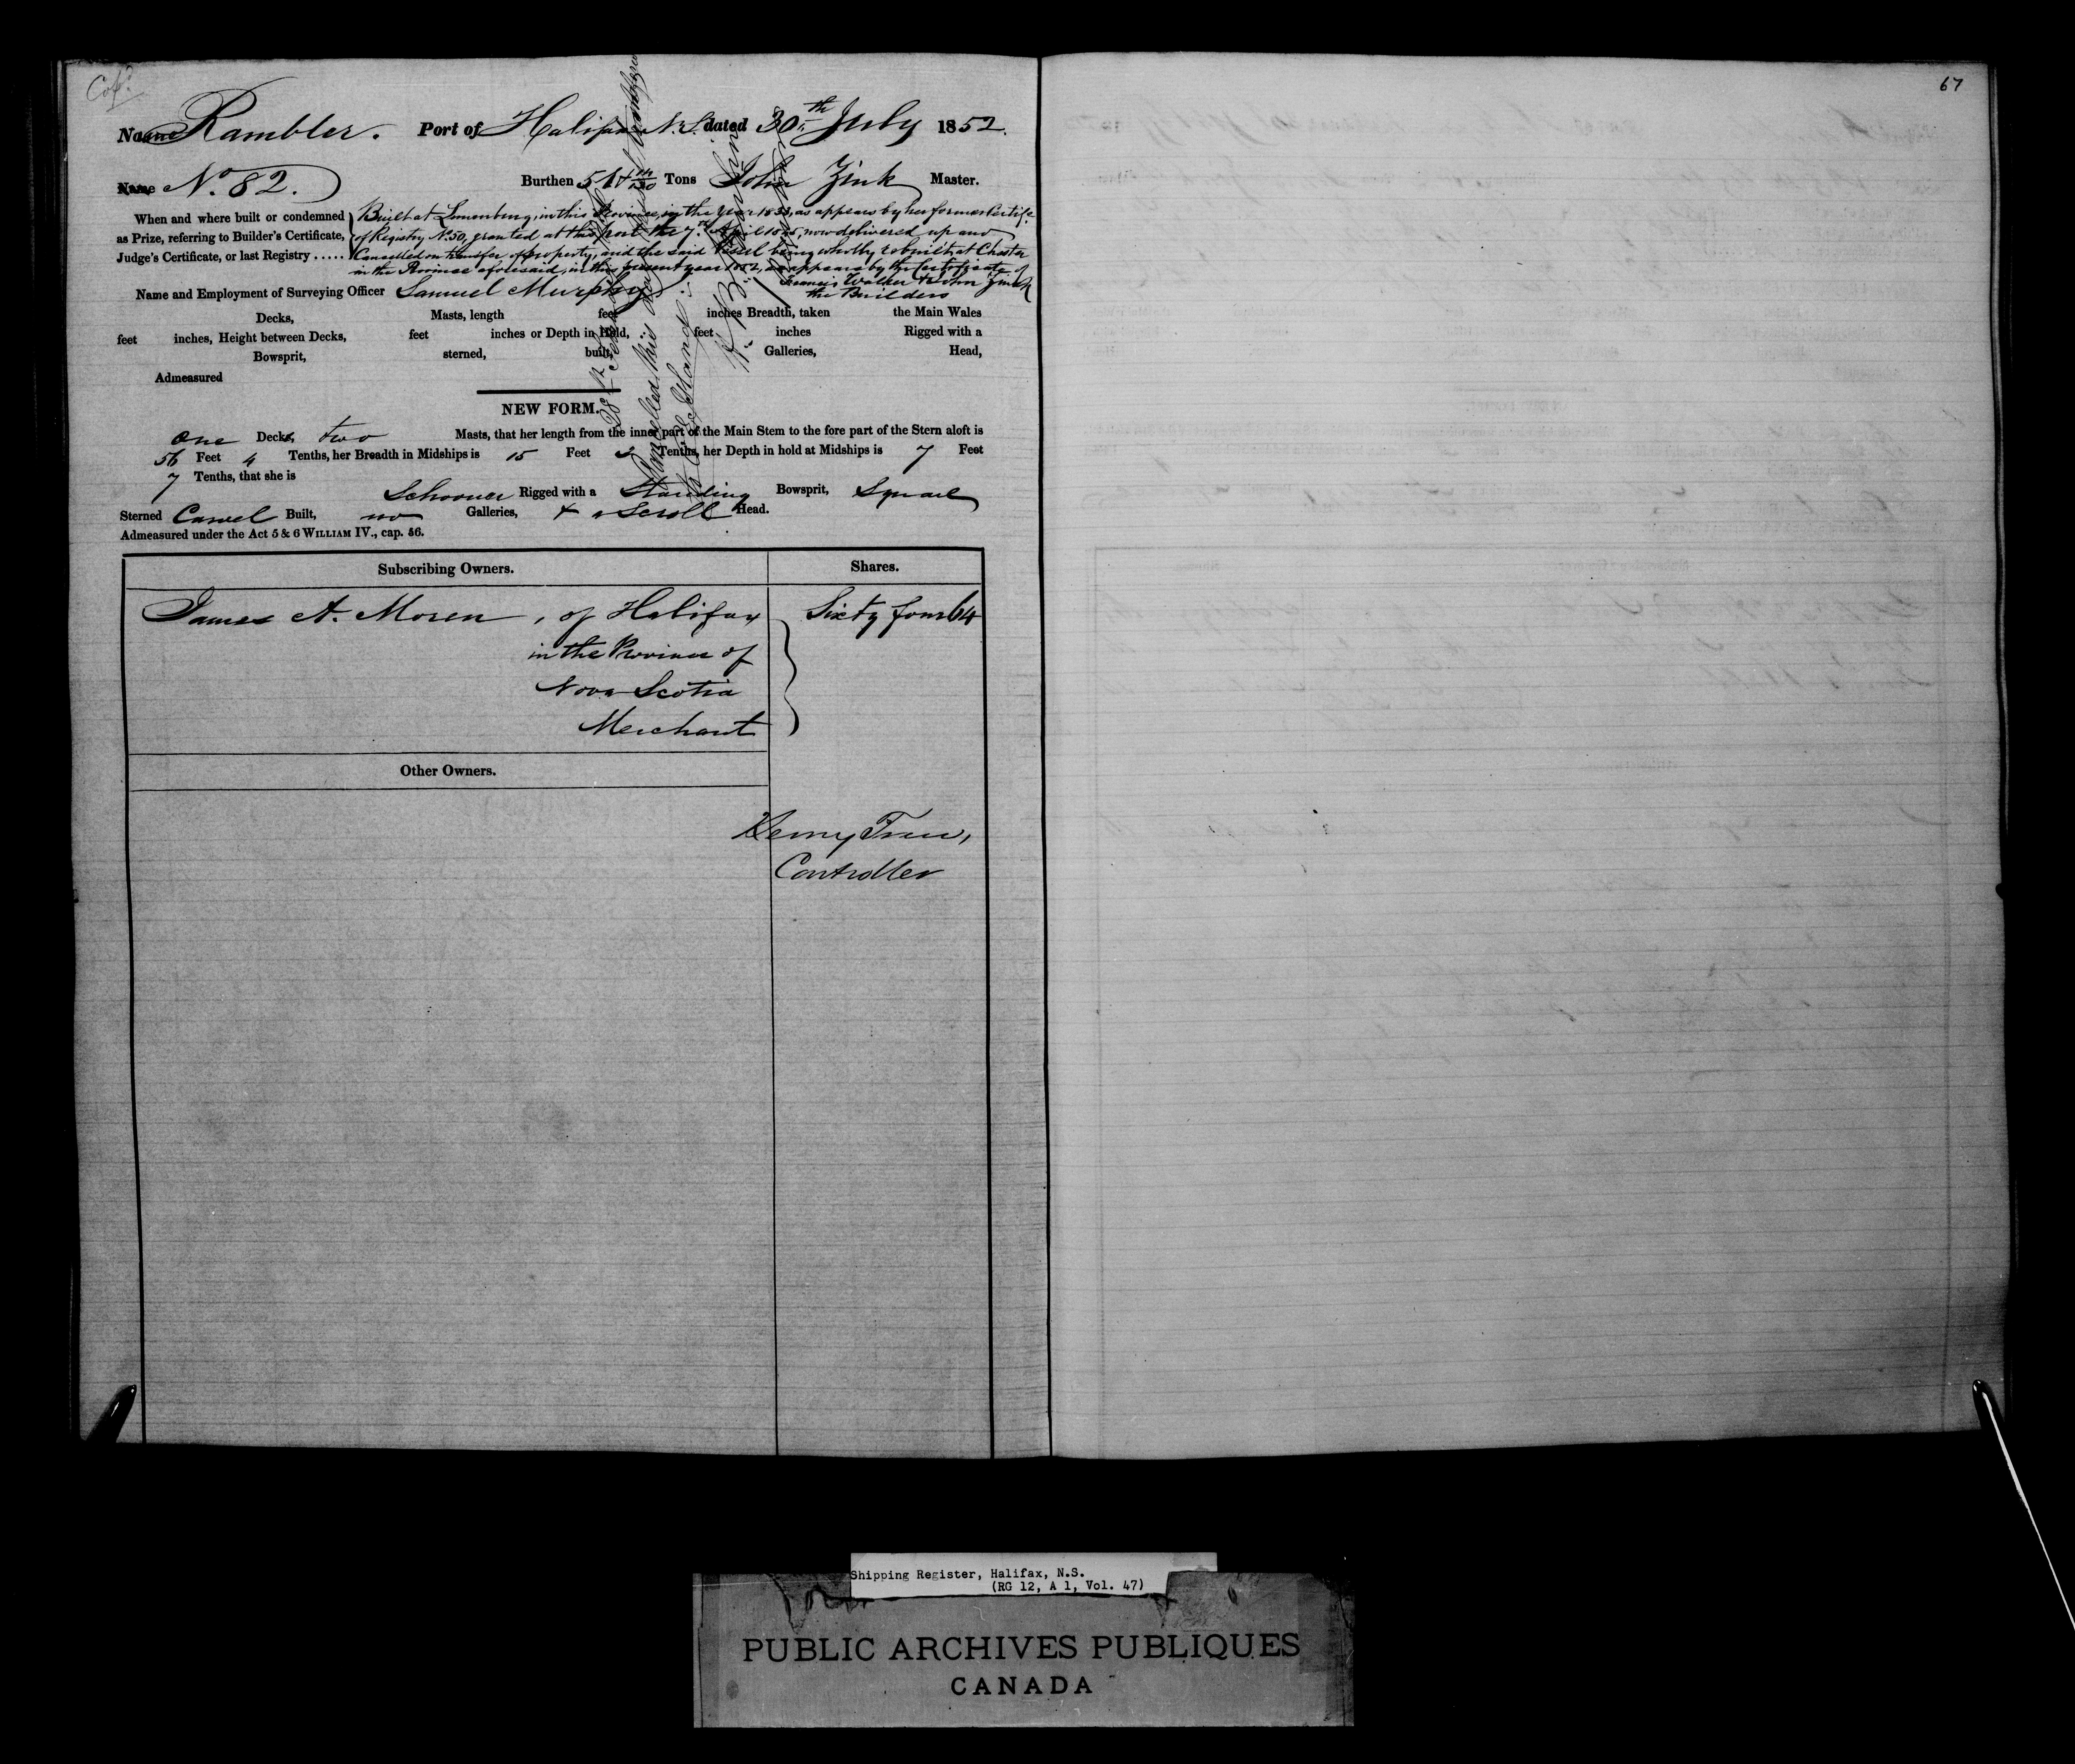 Cop?
67
Name Rambler. Port of Halifax N.S. dated 30th July 1852.
Name No. 82. Burthen Tons John Zink Master.
When and where built or condemned
as Prize, referring to Builder's Certificate,
Judge's Certificate, or last Registry .....
Built at Lunenburg, in this Province, in the Year 1833, as appears by her former Certife.
of Registry No. 50, granted at this port the 7th April 18 , now delivered up and
Cancelled on transfer of property, and the said Vessel being wholly rebuilt at Chester
in the Province aforesaid, in this present year 1852, as appears by the Certificate of
Francis Walker & John Zink
the Builders
Name and Employment of Surveying Officer Samuel Murphy
Decks, Masts, length feet inches Breadth, taken the Main Wales
feet inches, Height between Decks, feet inches or Depth in Hold, feet inches Rigged with a
Bowsprit, sterned, built, Galleries, Head,
Admeasured
Cancelled this day
28th
NEW FORM.
One Decks, two Masts, that her length from the inner part of the Main Stem to the fore part of the Stern aloft is
56 Feet 4 Tenths, her Breadth in Midships is 15 Feet Tenths, her Depth in hold at Midships is 7 Feet
7 Tenths, that she is
Schooner Rigged with a Standing Bowsprit, Square
Sterned Carvel Built, no Galleries, & a Scroll Head.
Admeasured under the Act 5 & 6 WILLIAM IV., cap. 56.
Subscribing Owners. Shares.
James A. Moren, of Halifax Sixty four 64
in the Province of
Nova Scotia
Merchant
Other Owners.
Henry Trew,
Controller
Shipping Register, Halifax, N.S.
(RG 12, A 1, Vol. 47)
PUBLIC ARCHIVES PUBLIQUES
CANADA